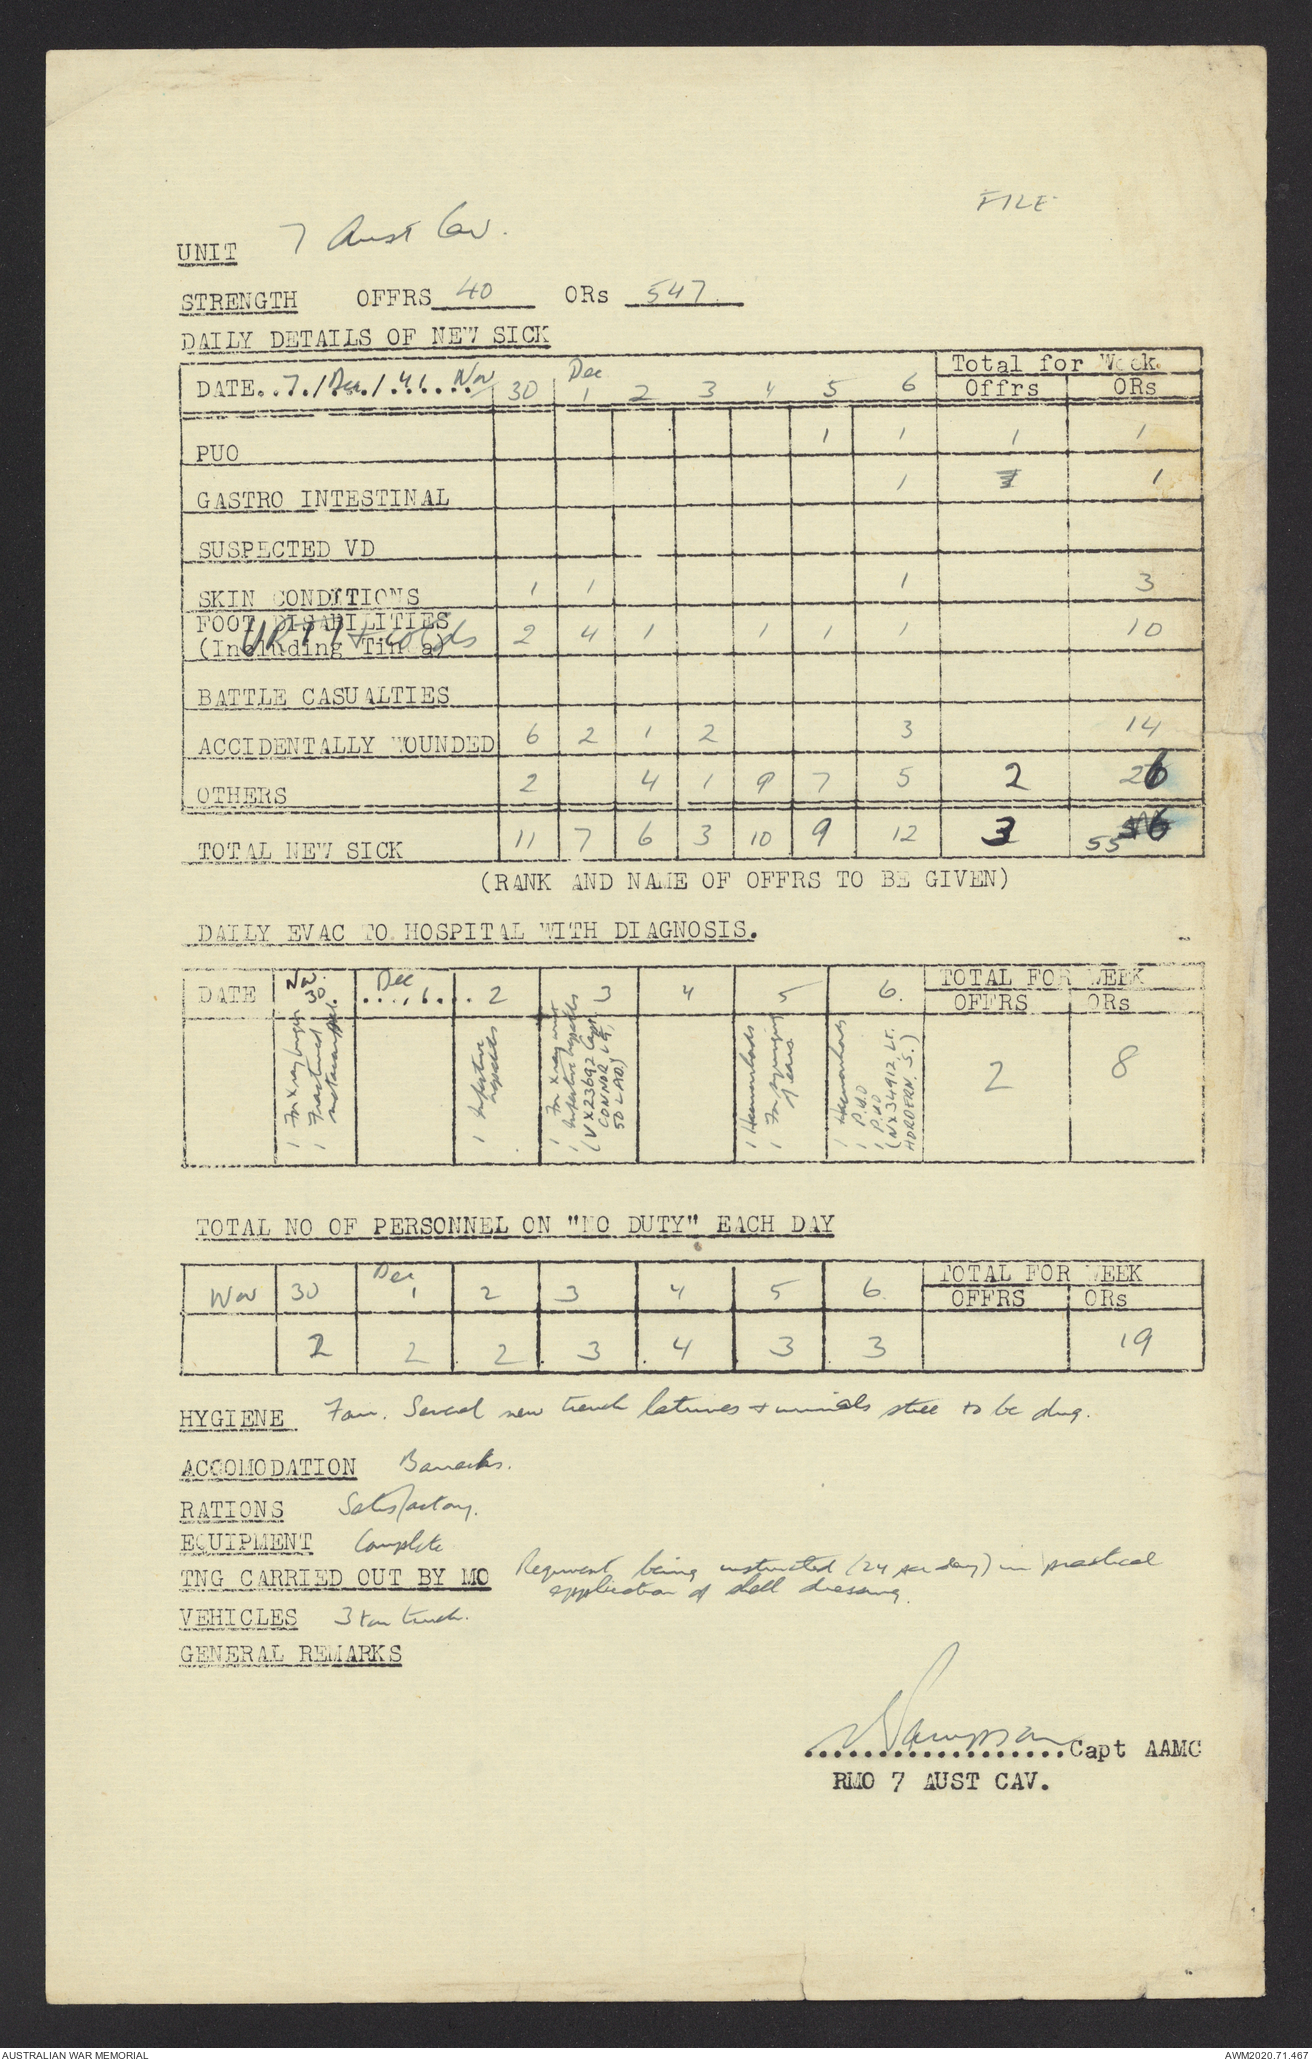 FILE
UNIT 7 Aust Cav.
STRENGTH OFFRS 40 ORs 547.
DAILY DETAILS OF NEW SICK
DATE..7./Dec./.41...... Nov 30 Dec 1 2 3 4 5 6 Total for Week. Offrs ORs
PUO 1 1 1 1
GASTRO INTESTINAL 1 1
SUSPECTED VD
SKIN CONDITIONS 1 1 1 3
FOOT DISABILITIES
(Including Tinea) URTI + colds 2 4 1 1 1 1 10
BATTLE CASUALTIES
ACCIDENTALLY WOUNDED 6 2 1 2 3 14
OTHERS 2 4 1 9 7 5 2 26
TOTAL NEW SICK 11 7 6 3 10 9 12 3 55
(RANK AND NAME OF OFFRS TO BE GIVEN)
DAILY EVAC TO HOSPITAL WITH DIAGNOSIS.
DATE Nov. 30. Dec ...1.... 2 3 4 5 6. TOTAL FOR WEEK
OFFRS ORs
1 For X ray
1 Fractured metacarpal.
1 Infective hepatitis
1 For X ray
1 Infective hepatitis
(VX23692 Capt.
CONNOR
50 LAD)
1 Haemorrhoids
1 For syringing
of ears
1 Haemorrhoids
1 P.U.O
1 P.U.O
(NX34912 Lt.
HORDERN. S.)
2 8
TOTAL NO OF PERSONNEL ON "NO DUTY" EACH DAY
Nov 30 Dec 1 2 3 4 5 6. TOTAL FOR WEEK
OFFRS ORs
2 2 2 3 4 3 3 19
HYGIENE Fair. Several new trench latrines + urinals still to be dug.
ACCOMODATION Barracks.
RATIONS Satisfactory.
EQUIPMENT Complete
TNG CARRIED OUT BY MO Regiment being instructed (24 per day) in practical
application of shell dressing.
VEHICLES 3 ton truck.
GENERAL REMARKS
..................Capt AAMC
RMO 7 AUST CAV.
AUSTRALIAN WAR MEMORIAL AWM2020.71.467